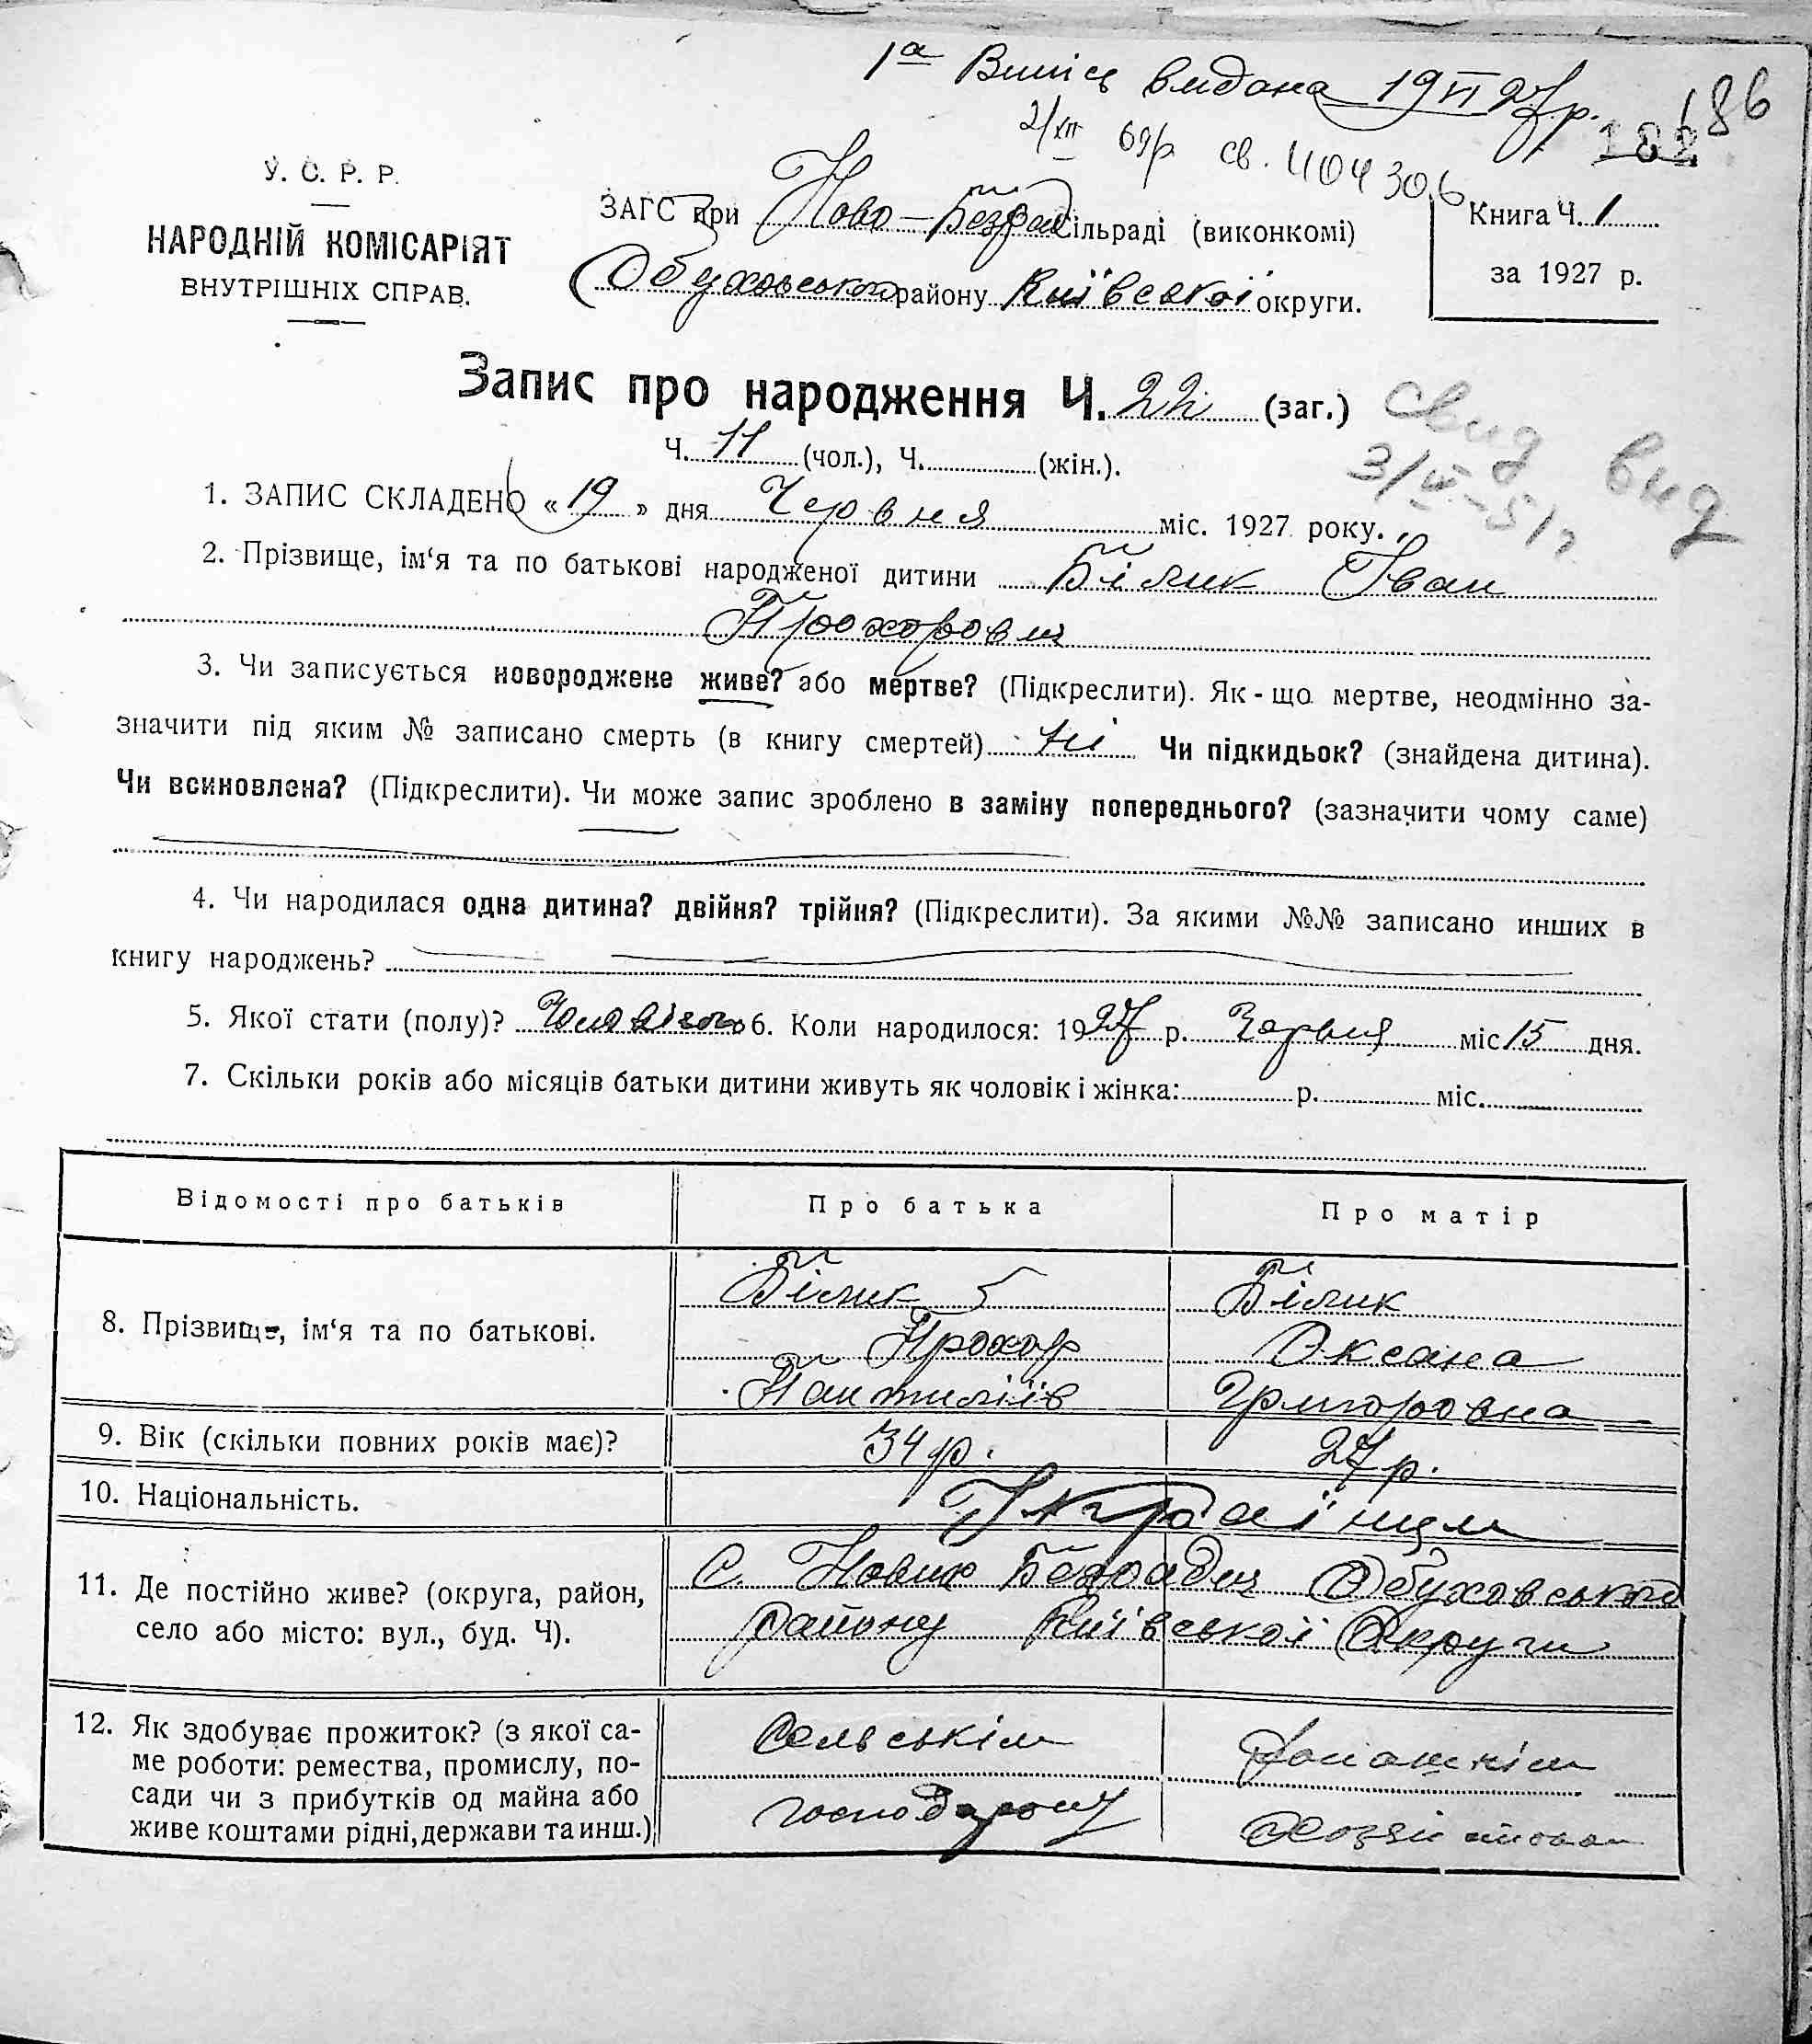 1а Випис видана 19 VI 27 р.
186
182
2/XII 69р св. 404306
У. С. Р. Р.
НАРОДНІЙ КОМІСАРІЯТ
ВНУТРІШНІХ СПРАВ.
ЗАГС при Ново-Безрад сільраді (виконкомі)
Обуховського району Київської округи.
Книга Ч. 1
за 1927 р.
Запис про народження Ч. 22 (заг.)
Ч. 11 (чол.), Ч. (жін.).
свид вид
3/ -51г
1. ЗАПИС СКЛАДЕНО « 19 » дня Червня міс. 1927 року.
2. Прізвище, ім‘я та по батькові народженої дитини Білик Іван
Прохорович
3. Чи записується новороджене живе? або мертве? (Підкреслити). Як-що мертве, неодмінно за-
значити під яким № записано смерть (в книгу смертей) ні Чи підкидьок? (знайдена дитина).
Чи всиновлена? (Підкреслити). Чи може запис зроблено в заміну попереднього? (зазначити чому саме)
4. Чи народилася одна дитина? двійня? трійня? (Підкреслити). За якими №№ записано инших в
книгу народжень?
5. Якої стати (полу)? 6. Коли народилося: 1927 р. Червня міс 15 дня.
7. Скільки років або місяців батьки дитини живуть як чоловік і жінка: р. міс.
Відомості про батьків Про батька Про матір
8. Прізвище, ім‘я та по батькові.
Білик Білик
Прохор Оксана
Пантиліїв Григоровна
9. Вік (скільки повних років має)? 34 р. 27 р.
10. Національність. Українци
11. Де постійно живе? (округа, район,
село або місто: вул., буд. Ч).
С. Нових Безрадич Обуховського
району Київської Округи
12. Як здобуває прожиток? (з якої са-
ме роботи: ремества, промислу, по-
сади чи з прибутків од майна або
живе коштами рідні, держави та инш.)
Сельськім Домашнім
господарст